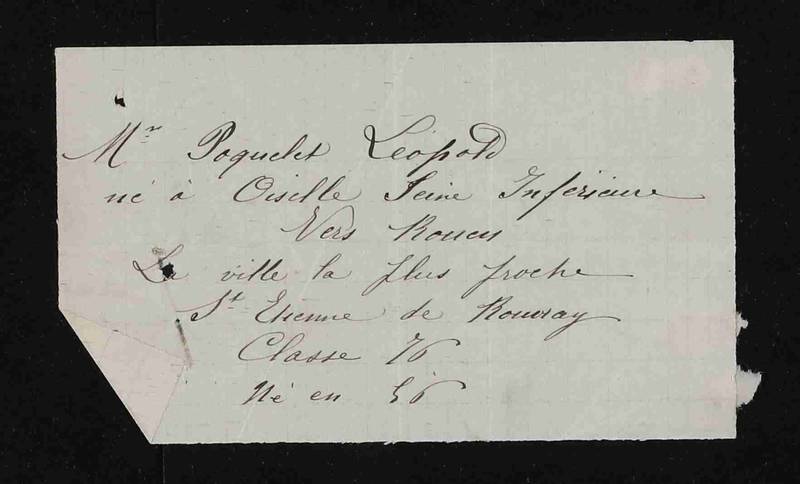 Mr Poquelet Léopold
né à Oiselle Seine Inferieure
Vers Rouen
La ville la plus proche
St Etienne de Rouvray
Classe 76
Né en 56